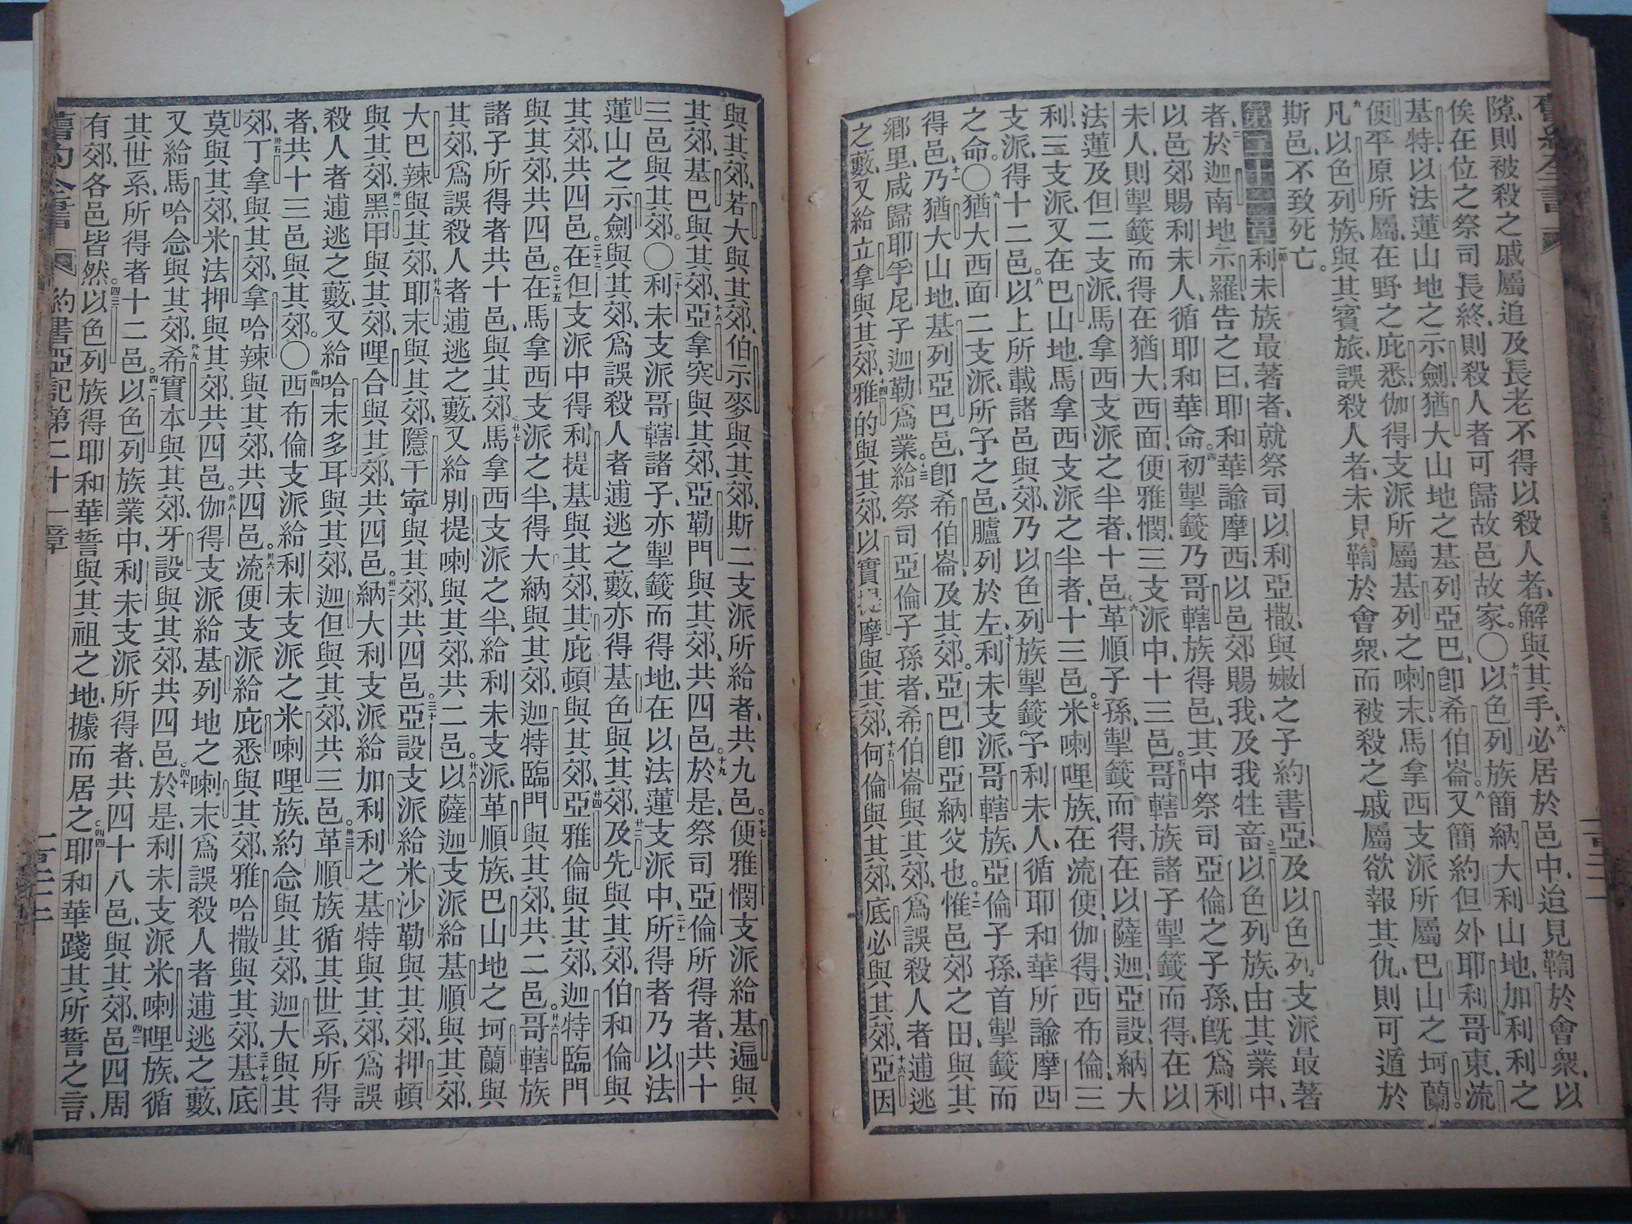 舊約全書
隙則被殺之戚屬追及長老不得以殺人者解與其手必居於邑中迨見鞫於會衆以
俟在位之祭司長終則殺人者可歸故邑故家〇以色列族簡納大利山地加利利之
基特以法蓮山地之示劍猶大山地之基列亞巴卽希伯崙又簡約但外耶利哥東流
便平原所屬在野之庇悉伽得支派所屬基列之喇末馬拿西支派所屬巴山之坷蘭
凡以色列族與其賓旅誤殺人者未見鞫於會衆而被殺之戚屬欲報其仇則可遁於
斯邑不致死亡
利未族最著者就祭司以利亞撒與嫩之子約書亞及以色列支派最著
者於迦南地示羅告之曰耶和華諭摩西以邑郊賜我及我牲畜以色列族由其業中
以邑郊賜利未人循耶和華命初掣籤乃哥轄族得邑其中祭司亞倫之子孫旣爲利
未人則掣籤而得在猶大西面便雅憫三支派中十三邑哥轄族諸子掣籤而得在以
法蓮及但二支派馬拿西支派之半者十邑革順子孫掣籤而得在以薩迦亞設納大
利三支派又在巴山地馬拿西支派之半者十三邑米喇哩族在流便伽得西布倫三
支派得十二邑以上所載諸邑與郊乃以色列族掣籤予利未人循耶和華所諭摩西
之命〇猶大西面二支派所予之邑臚列於左利未支派哥轄族亞倫子孫首掣籤而
得邑乃猶大山地基列亞巴邑卽希伯崙及其郊亞巴卽亞納父也惟邑郊之田與其
鄉里咸歸耶孚尼子迦勒爲業給祭司亞倫子孫者希伯崙與其郊爲誤殺人者逋逃
之藪又給立拿與其郊雅的與其郊以實提摩與其郊何倫與其郊底必與其郊亞因
與其郊若大與其郊伯示麥與其郊斯二支派所給者共九邑便雅憫支派給基遍與
其郊基巴與其郊亞拿突與其郊亞勒門與其郊共四邑於是祭司亞倫所得者共十
三邑與其郊〇利未支派哥轄諸子亦掣籤而得地在以法蓮支派中所得者乃以法
蓮山之示劍與其郊爲誤殺人者逋逃之藪亦得基色與其郊及先與其郊伯和倫與
其郊共四邑在但支派中得利提基與其郊其庇頓與其郊亞雅倫與其郊迦特臨門
與其郊共四邑在馬拿西支派之半得大納與其郊迦特臨門與其郊共二邑哥轄族
諸子所得者共十邑與其郊馬拿西支派之半給利未支派革順族巴山地之坷蘭與
其郊爲誤殺人者逋逃之藪又給別提喇與其郊共二邑以薩迦支派給基順與其郊
大巴辣與其郊耶末與其郊隱干寗與其郊共四邑亞設支派給米沙勒與其郊押頓
與其郊黑甲與其郊哩合與其郊共四邑納大利支派給加利利之基特與其郊爲誤
殺人者逋逃之藪又給哈末多耳與其郊迦但與其郊共三邑革順族循其世系所得
者共十三邑與其郊〇西布倫支派給利未支派之米喇哩族約念與其郊迦大與其
郊丁拿與其郊拿哈辣與其郊共四邑流便支派給庇悉與其郊雅哈撒與其郊基底
莫與其郊米法押與其郊共四邑伽得支派給基列地之喇末爲誤殺人者逋逃之藪
又給馬哈念與其郊希實本與其郊牙設與其郊共四邑於是利未支派米喇哩族循
其世系所得者十二邑以色列族業中利未支派所得者共四十八邑與其郊邑四周
有郊各邑皆然以色列族得耶和華誓與其祖之地據而居之耶和華踐其所誓之言
舊約全書 約書亞記第二十一章